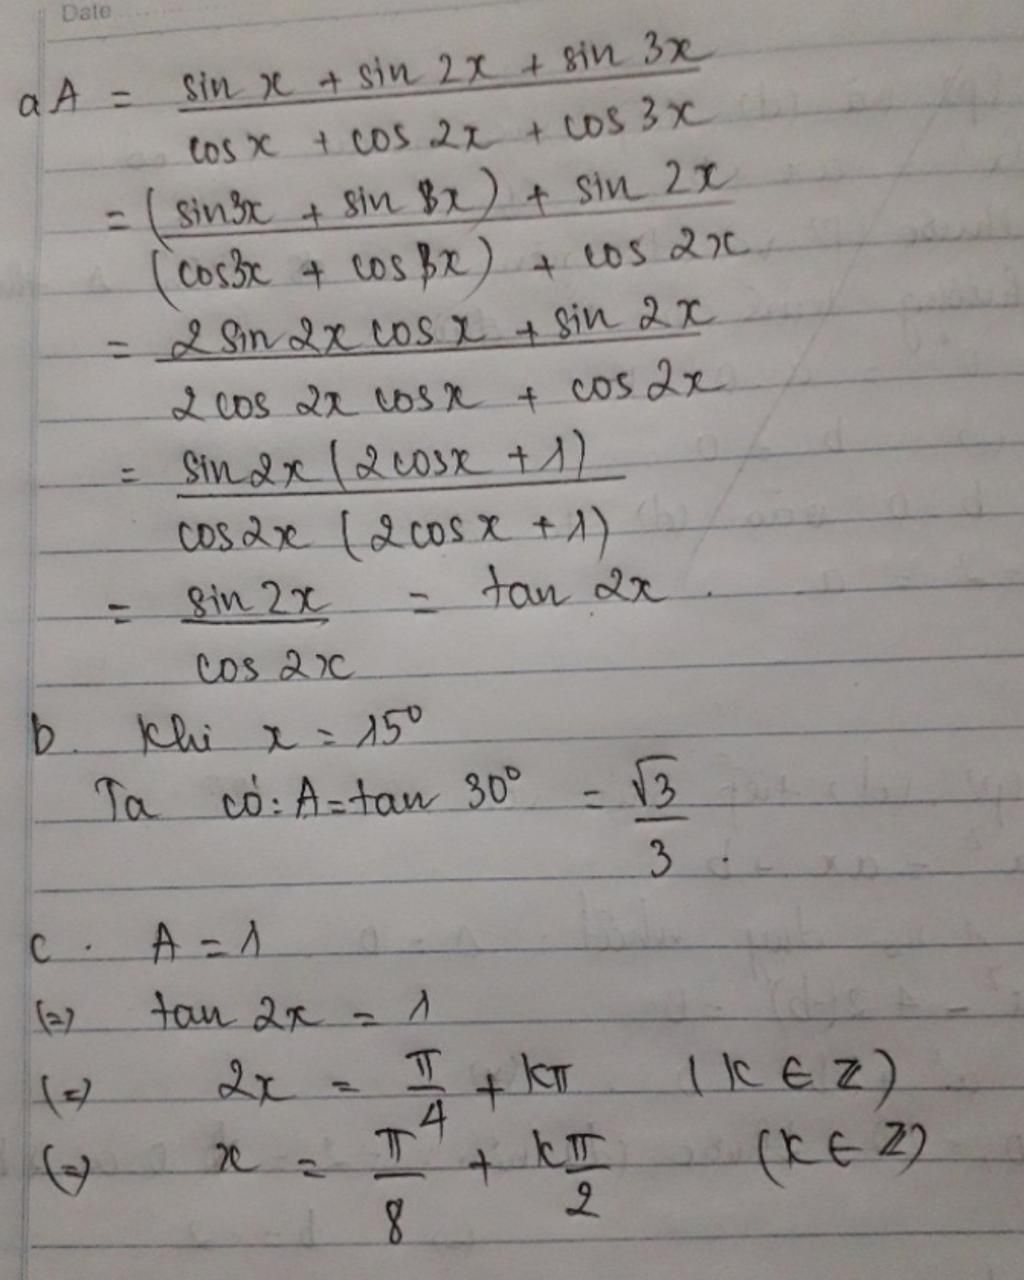 Date
a A = (sin x + sin 2x + sin 3x) / (cos x + cos 2x + cos 3x)
= ((sin3x + sin x) + sin 2x) / ((cos3x + cos x) + cos 2x)
= (2 sin 2x cos x + sin 2x) / (2 cos 2x cos x + cos 2x)
= (sin 2x (2cosx + 1)) / (cos2x (2cosx + 1))
= sin 2x / cos 2x = tan 2x .
b. Khi x = 15°
Ta có: A = tan 30° = √3 / 3 .
c. A = 1
(=) tan 2x = 1
(=) 2x = π/4 + kπ (k ∈ Z)
(=) x = π/8 + kπ/2 (k ∈ Z)